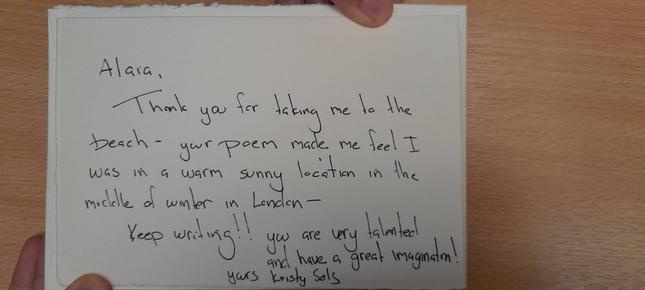 Alara,
Thank you for taking me to the
beach - your poem made me feel I
was in a warm sunny location in the
middle of winter in London -
Keep writing!! you are very talented
and have a great imagination!
yours Kristy Sels